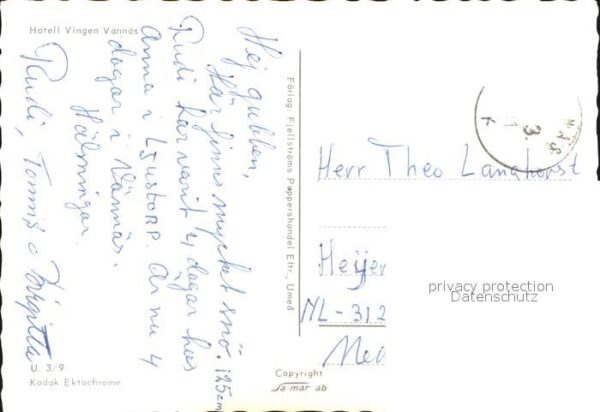 Hotell Vingen Vännäs
Hej gubben,
Här finns mycket snö. 125 cm
Rudi har varit 4 dagar hos
Anna i LJUSTORP. Är nu 4
dagar i Vännäs.
Hälsningar
Rudi, Tommis o Birgitta
U. 3/9
Kodak Ektachrome
Förlag: Fjellströms Pappershandel Eftr., Umeå
Copyright
Sa-mar ab
Herr Theo Langhorst
Heijer
NL-312
Med
privacy protection
Datenschutz